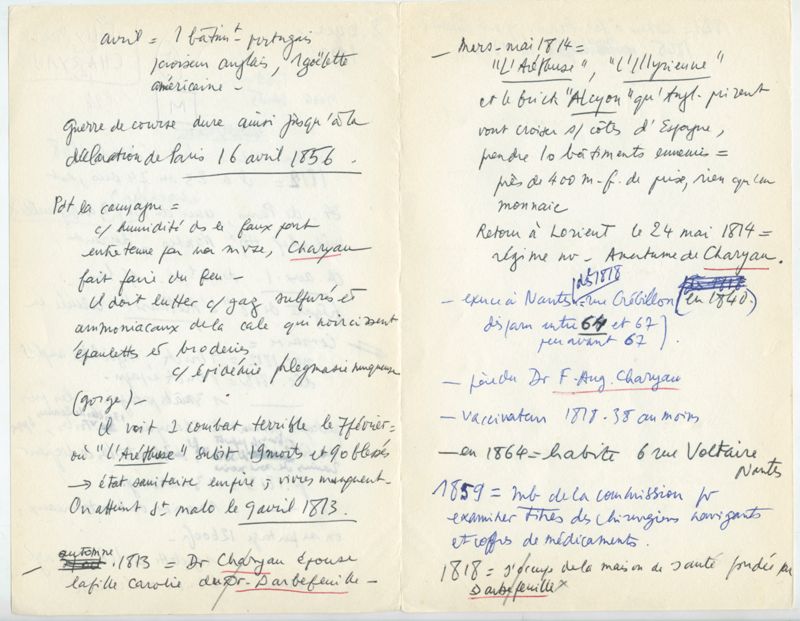 avril = 1 bâtimt portugais
1 croiseur anglais, 1 goëlette
américaine -
guerre de course dure ainsi jusqu'à la
déclaration de Paris 16 avril 1856.
Pdt la campagne =
c/ humidité ds le faux pont
entretenue par nos, Charyau
fait faire du feu -
il doit lutter c/ gaz sulfurés et
ammoniacaux de la cale qui noircissent
épaulettes et broderies
c/ épidémie phlegmasie muqueuse
(gorge) -
il voit 1 combat terrible le 7 février =
où "L'Aréthuse" subit 19 morts et 90 blessés
→ état sanitaire empire, vivres manquent -
On atteint St malo le 9 avril 1813.
- automne 1813 = Dr Charyau épouse
la fille Carolie du Dr. Darbefeuille -
- Mars - mai 1814 =
"L'Aréthuse", "L'Illyrienne"
et le brick "Alcyon" qu'Angl. prirent
vont croiser s/ côtes d'Espagne,
prendre 10 bâtiments ennemis =
près de 400 m. f. de prise, rien qu'en
monnaie
Retour à Lorient le 24 mai 1814 =
régime nv - Amertume de Charyau.
- exerce à Nantes dès 1818 = rue Crébillon (en 1840)
disparu entre 64 et 67
peu avant 67).
- père du Dr F. Aug. Charyau
- vaccinateur 1818 - 38 au moins
- en 1864 = habite 6 rue Voltaire
Nantes
1859 = mb de la commission pr
examiner titres des chirurgiens navigants
et coffres de médicaments.
1818 = s'occupe de la maison de santé fondée par
Darbefeuille x